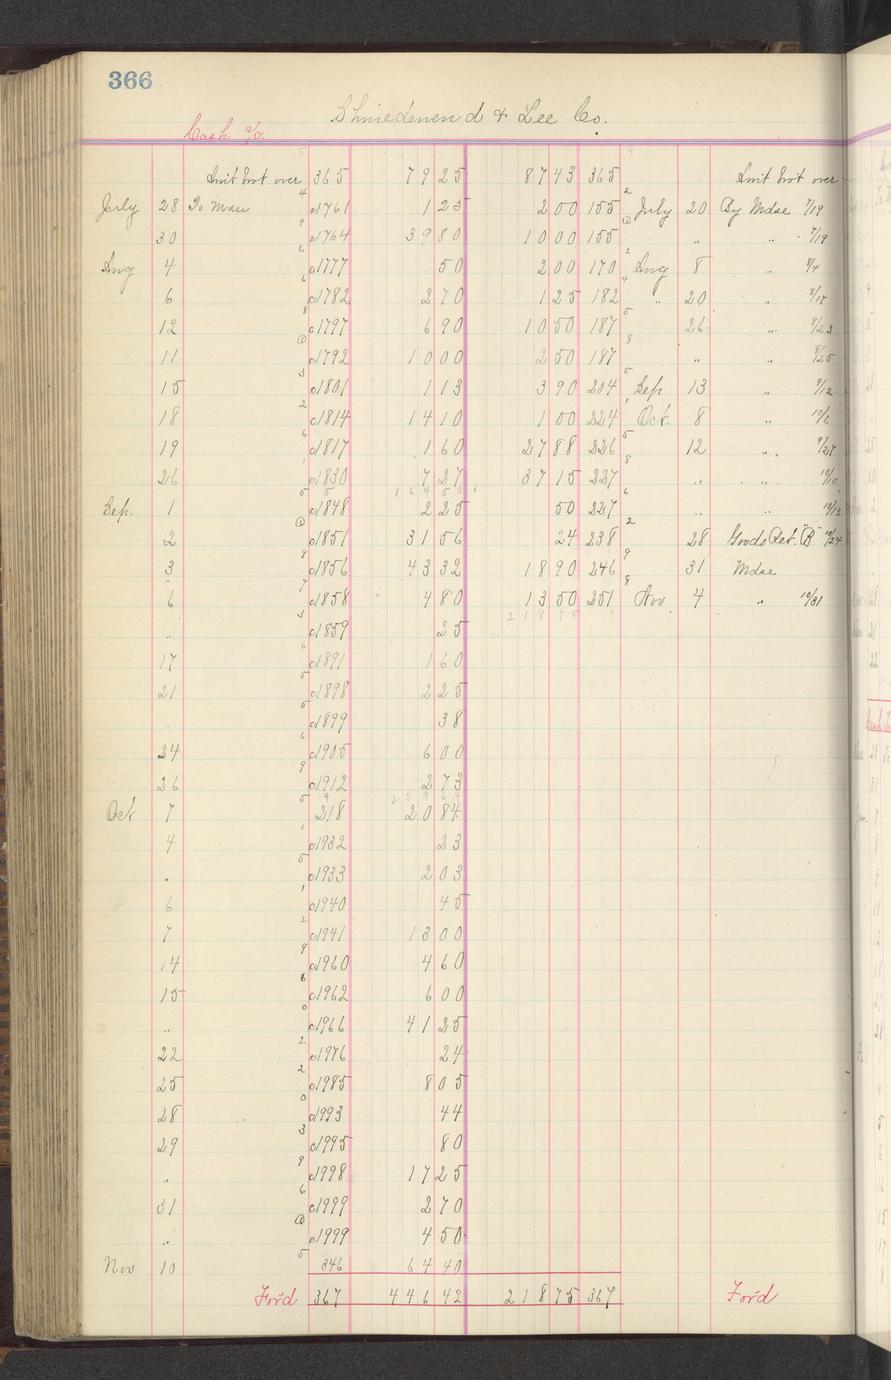 366
Shniedewend & Lee Co.
Cash a/c.
Amt brot over 365 79 25 87 43 365 Amt brot over
July 28 To Mdse 1761 1 25 2 00 155 July 20 By Mdse 7/19
30 1764 39 80 10 00 155 " " 7/19
Aug 4 1777 50 2 00 170 Aug 8 " 8/4
6 1782 2 70 1 25 182 " 20 " 8/17
12 1797 6 90 10 50 187 26 " 8/23
11 1792 10 00 2 50 187 " " 8/25
15 1801 1 13 3 90 204 Sep 13 " 9/12
18 1814 14 10 1 00 224 Oct. 8 " 10/6
19 1817 1 60 27 88 226 12 " 9/27
26 1830 7 27 37 15 227 " " 10/10
Sep. 1 1848 2 25 50 227 " " 10/13
2 1851 31 56 24 238 28 Goods Ret. "B" 10/24
3 1856 43 32 18 90 246 31 Mdse
6 1858 4 80 13 50 251 Nov 4 " 10/31
" 1859 25
17 1891 1 60
21 1898 2 25
1899 38
24 1905 6 00
26 1912 2 73
Oct 7 218 20 84
4 1932 23
" 1933 2 03
6 1940 45
7 1941 13 00
14 1960 4 60
15 1962 6 00
" 1966 41 25
22 1976 24
25 1985 8 05
28 1993 44
29 1995 80
" 1998 17 25
31 1999 2 70
" 1999 4 50
Nov 10 346 64 40
For'd 367 446 42 218 75 367 For'd